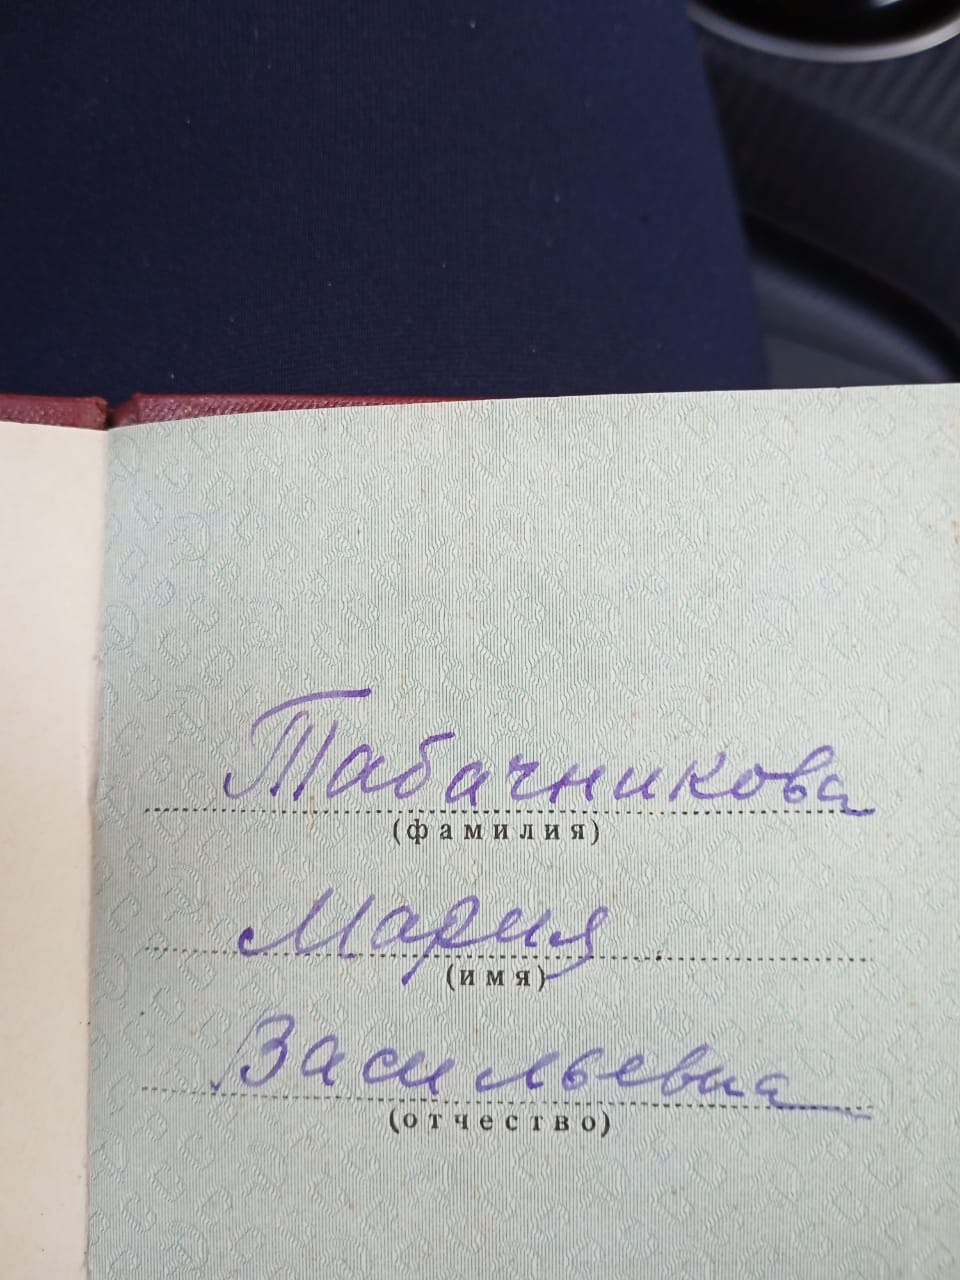 Табачникова
(фамилия)
Мария
(имя)
Васильевна
(отчество)